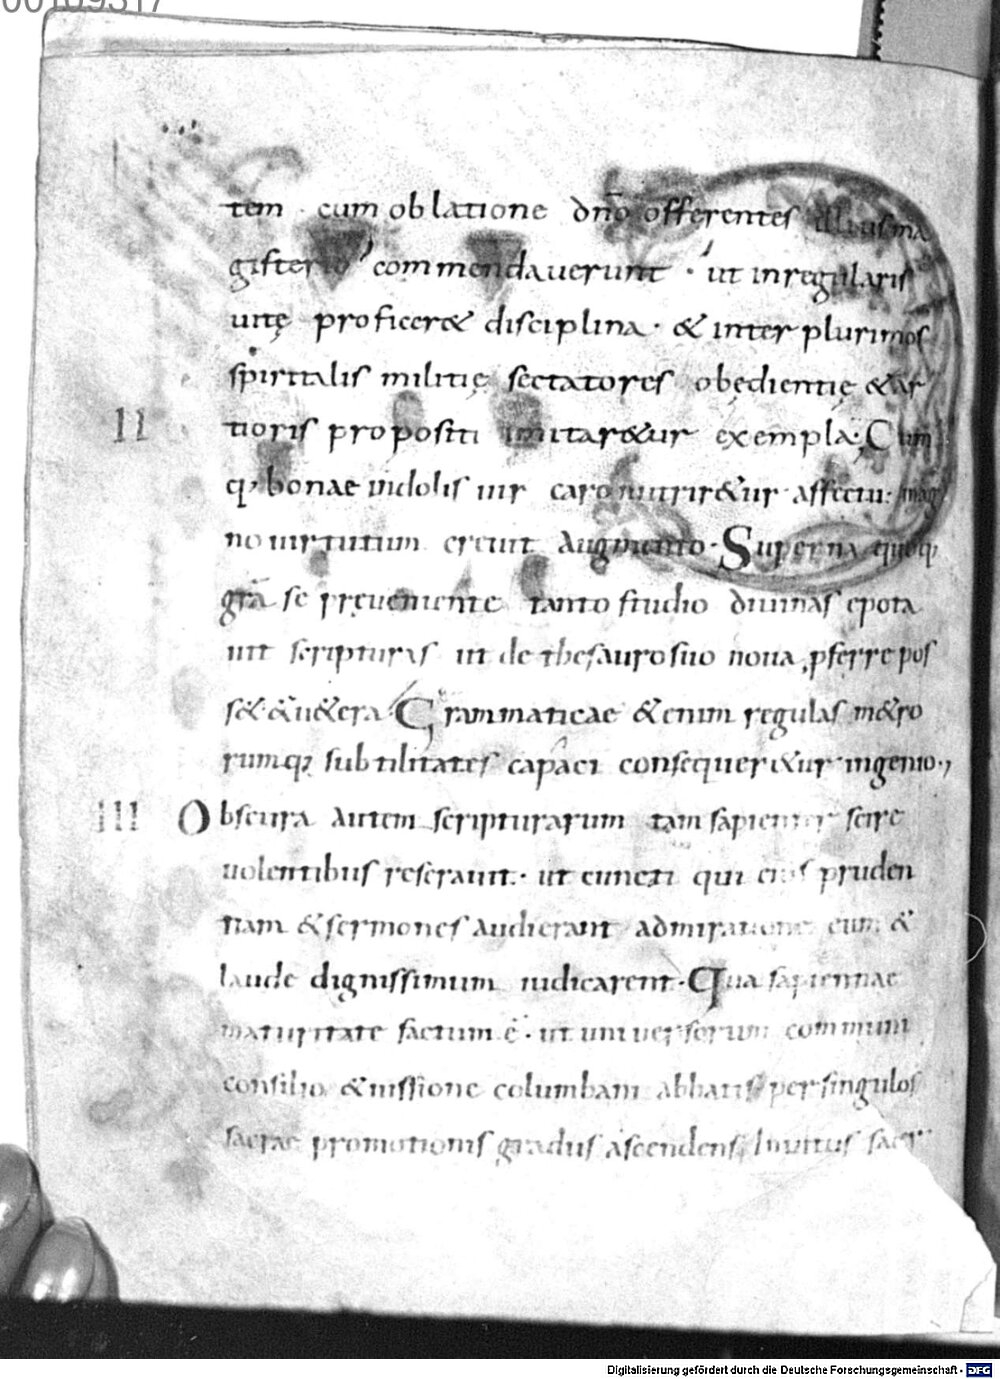 tem · cum oblatione dnō offerentes illius ma
gisterio commendauerunt · ut inregularis
uitę proficer& disciplina · & inter plurimos
spiritalis militię sectatores obędientię & ar
II tioris propositi imitar&ur exempla ; Cum
q; bonae indolis uir caro nutrir&ur affectu : mag
no uirtutum creuit augmento · Superna quoq;
grā se pręueniente tanto studio diuinas epota
uit scripturas ut de thesauro suo noua pferre pos
s& & u&era · Grammaticae &enim regulas m&ro
rumq; subtilitates capaci consequer&ur ingenio ·,
III Obscura autem scripturarum tam sapienter scire
uolentibus reserauit · ut cuncti qui eius pruden
tiam & sermones audierant admiratione eum &
laude dignissimum iudicarent · Qua sapientiae
maturitate factum ē · ut uniuersorum communi
consilio & iussione columbani abbatis per singulos
sacrae promotionis gradus ascendens, Inuitus sacer
Digitalisierung gefördert durch die Deutsche Forschungsgemeinschaft - DFG